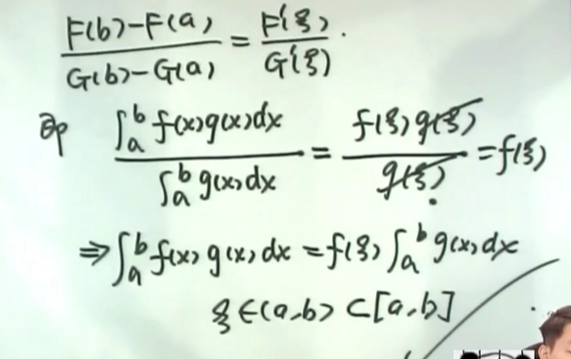 F(b)-F(a) / G(b)-G(a) = F'(ξ) / G'(ξ).
即 ∫ₐᵇ f(x)g(x)dx / ∫ₐᵇ g(x)dx = f(ξ)g(ξ) / g(ξ) = f(ξ)
⇒ ∫ₐᵇ f(x)g(x)dx = f(ξ)∫ₐᵇ g(x)dx
ξ∈(a,b)⊂[a,b]